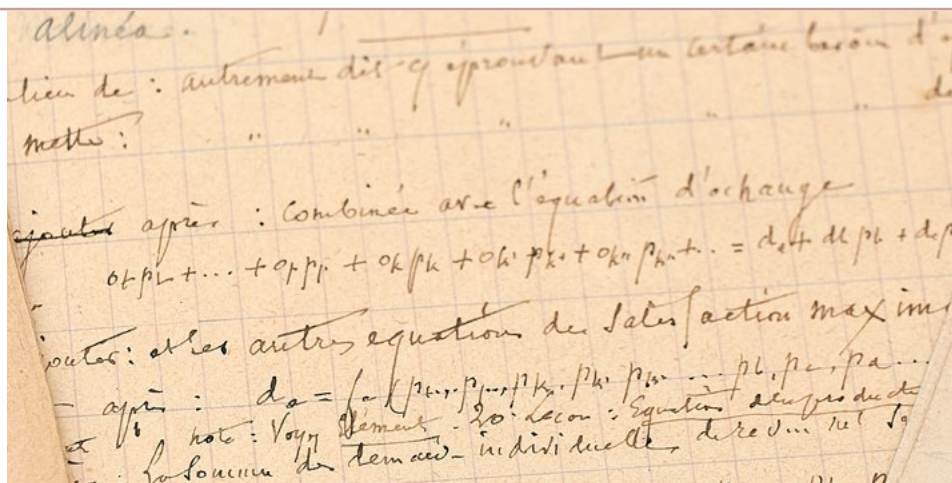 alinéa.
lieu de : autrement dit q éprouvant un certain besoin d'é
mettre : " " " " " de
ajouter après : combinée avec l'équation d'échange
+ ... + o_p p_p + o_k p_k + o_k' p_k' + o_k'' p_k'' + ... = d_a + d_b p_b + d_c p
outer : et les autres équations de satisfaction maxim
après : d_a = f_a (p_t ... p_p ... p_k, p_k' p_k'' ... p_b, p_c, p_d ...
note : Voyez Élément 20e Leçon : Équations de la producti
La somme des demandes individuelles de revenu net